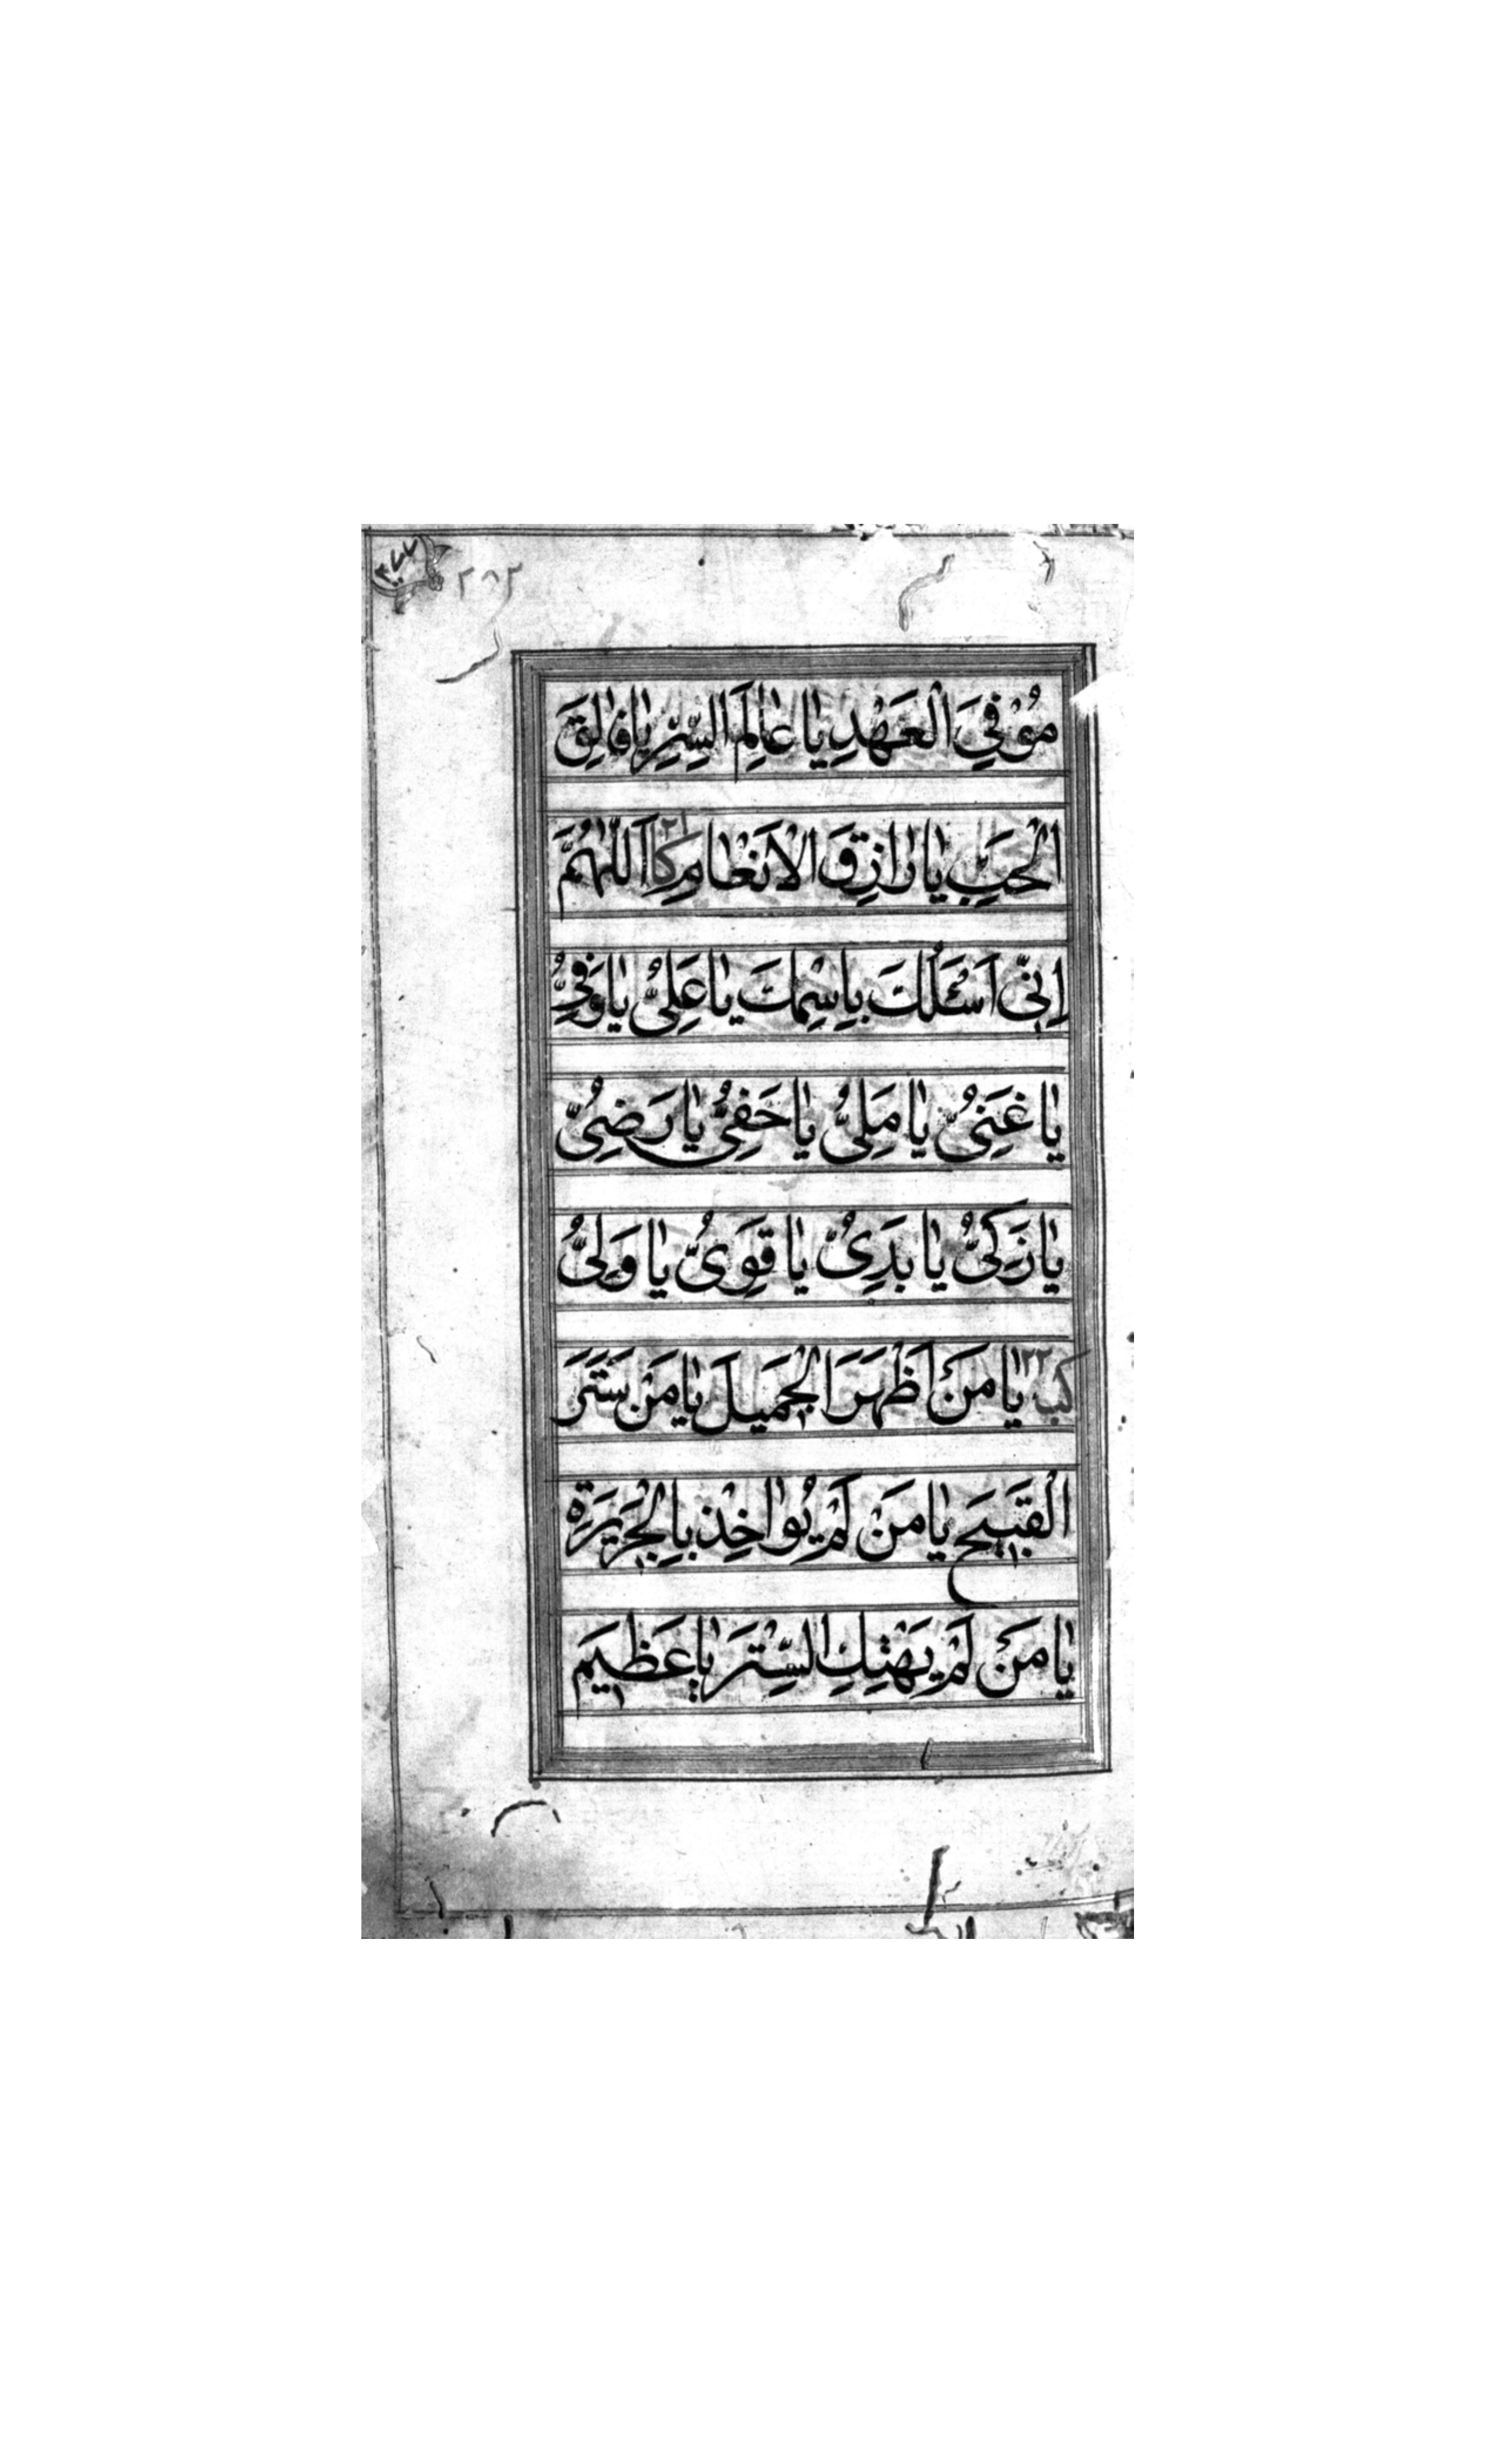 ٢٨٢
مُوْفِيَ الْعَهْدِ يٰا عٰالِمَ السِّرِّ يٰا فٰالِقَ
الْحَبِّ يٰا رٰازِقَ الْاَنْعٰامِ كا ٢١ اَللّٰهُمَّ
اِنّى اَسْئَلُكَ بِاِسْمِكَ يٰا عَلِىُّ يٰا وَفِىُّ
يٰا غَنِىُّ يٰا مَلِىُّ يٰا حَفِىُّ يٰا رَضِىُّ
يٰا زَكِىُّ يٰا بَدِىُّ يٰا قَوِىُّ يٰا وَلِىُّ
كب ١٢٢ يٰا مَنْ اَظْهَرَ الْجَمِيلَ يٰا مَنْ سَتَرَ
الْقَبِيحَ يٰا مَنْ لَمْ يُوٰاخِذْ بِالْجَرِيرَةِ
يٰا مَنْ لَمْ يَهْتِكِ السِّتْرَ يٰا عَظِيمَ